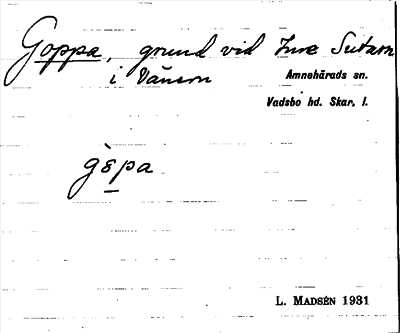 Goppa, grund vid Inre
i Vänern
Amnehärads sn.
Vadsbo hd. Skar. l.
gòpa
L. MADSÉN 1931